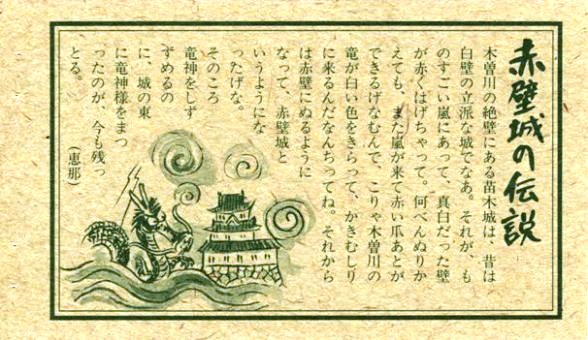 赤壁城の伝説
木曽川の絶壁にある苗木城は、昔は
白壁の立派な城でなあ。それが、も
のすごい嵐にあって、真白だった壁
が赤くはげちゃって。何べんぬりか
えても、また嵐が来て赤い爪あとが
できるげなむんで、こりゃ木曽川の
竜が白い色をきらって、かきむしり
に来るんだなんちってね。それから
は赤壁にぬるように
なって、赤壁城と
いうようにな
ったげな。
そのころ
竜神をしず
ずめるの
に、城の東
に竜神様をまつ
ったのが、今も残っ
とる。
(恵那)